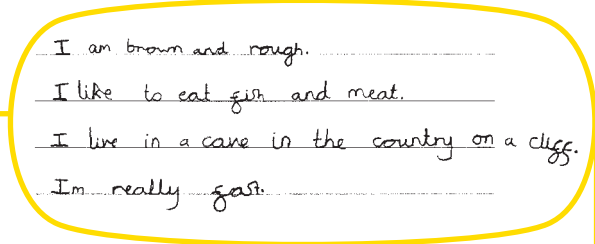 I am brown and rough.
I like to eat fish and meat.
I live in a cave in the country on a cliff.
Im really fast.